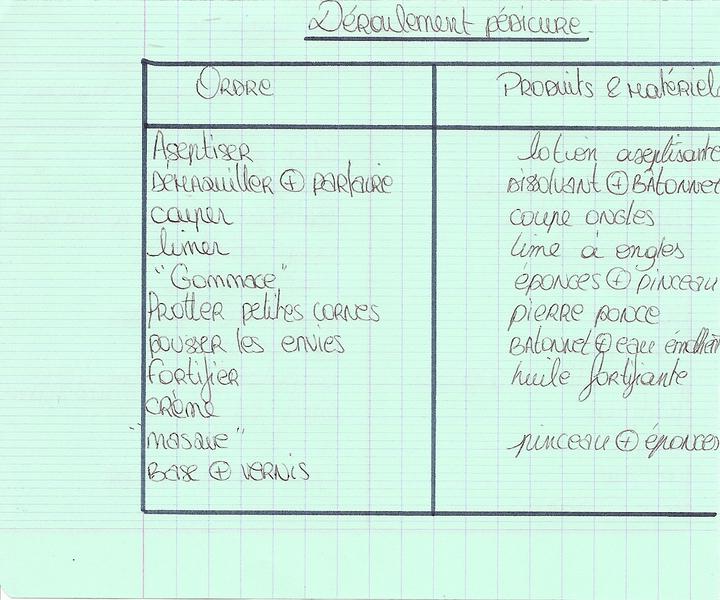 Déroulement pédicure.
Ordre Produits & matériel
Aseptiser lotion aseptisante
Démaquiller + parfaire Dissolvant + Bâtonnet
couper coupe ongles
limer lime à ongles
"Gommage" éponges + pinceau
Frotter petites cornes pierre ponce
pousser les envies Bâtonnet + eau
fortifier huile fortifiante
crème
"masque" pinceau + éponges
Base + vernis